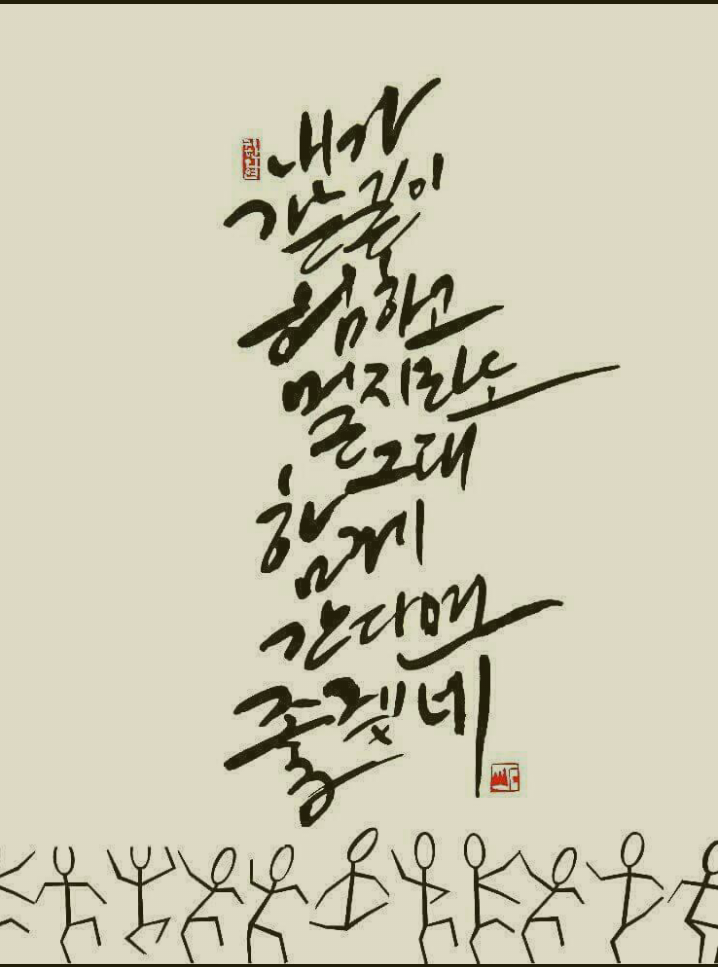 내가
가는 길이
험하고
멀지라도
그대
함께
간다면
좋겠네